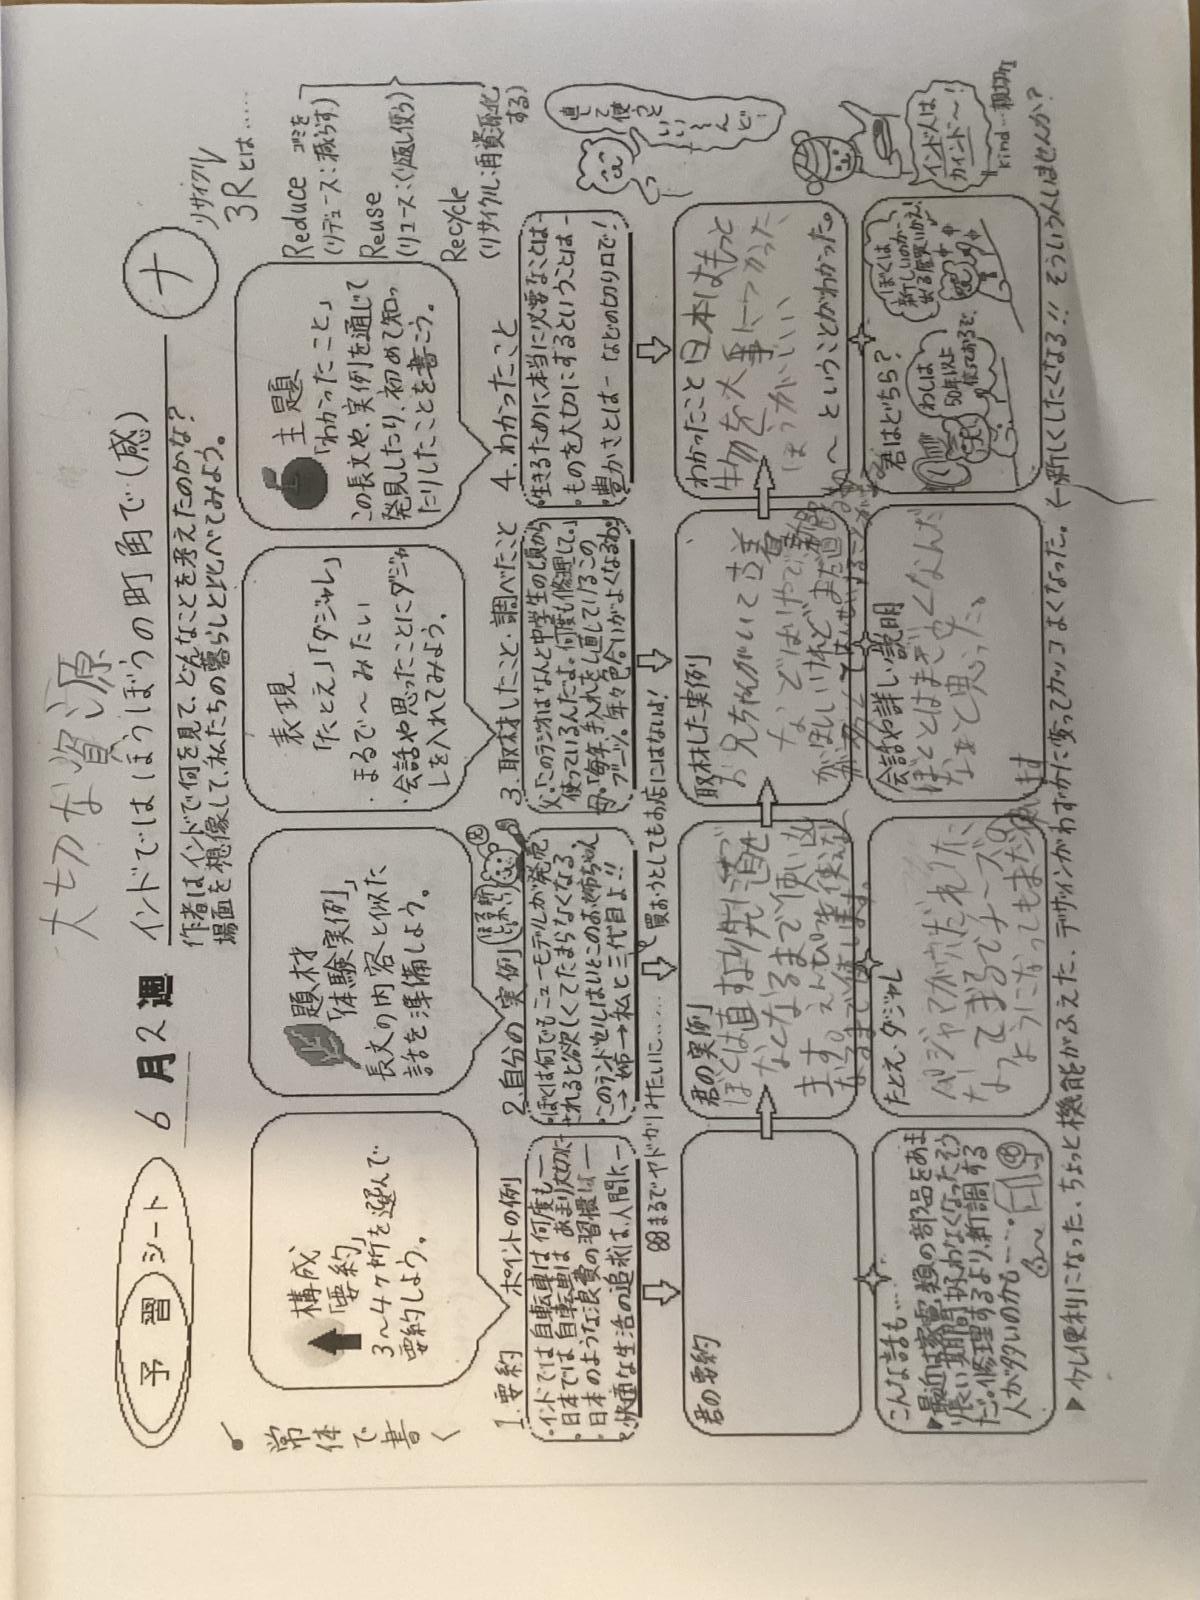 大切な資源
予習シート
6月2週
インドではほうぼうの町角で(感)
ナ
作者はインドで何を見て、どんなことを考えたのかな?
場面を想像して、私たちの暮らしと比べてみよう。
リサイクル
3Rとは……
Reduce ゴミを
(リデュース:減らす)
Reuse
(リユース:くり返し使う)
Recycle
(リサイクル:再資源化
する)
常体で書く
構成
「要約」
3〜4ヶ所を選んで
要約しよう。
題材
「体験実例」
長文の内容と似た
話を準備しよう。
表現
「たとえ」「ダジャレ」
・まるで〜みたい
・会話や思ったことにダジャ
レを入れてみよう。
主題
「わかったこと」
この長文や、実例を通じて
発見したり、初めて知っ
たりしたことを書こう。
1.要約 ポイントの例
・インドでは自転車は何度も―
・日本では自転車は あまり大切に―
・日本のような浪費の習慣は―
・快適な生活の追求は、人間に―
2.自分の実例
・ぼくは何でもニューモデルが発売
されると欲しくてたまらなくなる。
・このランドセルはいとこのお姉ちゃん
→姉→私と三代目よ!!
88まるでヤドカリみたいに……
3.取材したこと・調べたこと
父「このラジオはなんと中学生の頃から
使っているんだよ。何度も修理して。」
母「毎年手入れをし直しているこの
ブーツ。年々色合いがよくなるわ。
買おうとしてもお店にはないよ!
4.わかったこと
・生きるために本当に必要なことは―
・ものを大切にするということは―
・豊かさとは― などの切り口で!
直して使うといいんど!
インド人は
カインド〜!
kind…親切な
君の要約
君の実例
ぼくは直すより先に
なくなるまで使い
ます。えんぴつを使えな
くなるまで使います。
取材した実例
お兄ちゃんがいて古着
わかったこと日本はもっと
生物を大事につかった
ほうがいい
〜ということがわかった。
こんな話も……
▶最近は家電類の部品をあま
り長い期間扱わなくなったそう
だ。修理するより、新調する
人が多いのかも……。
たとえ・ダジャレ
パジャマが穴だれけた
なってまるでチーズの
ようになってもまだ使います
会話や詳しい説明
なあと思った。
君はどちら?
わしは
50年以上
使っておるで。
ぼくは
新しいのが
出る度買いかえ!
▶少し便利になった、ちょっと機能がふえた、デザインがわずかに変ってカッコよくなった。(←新しくしたくなる!! そういう人いませんか?